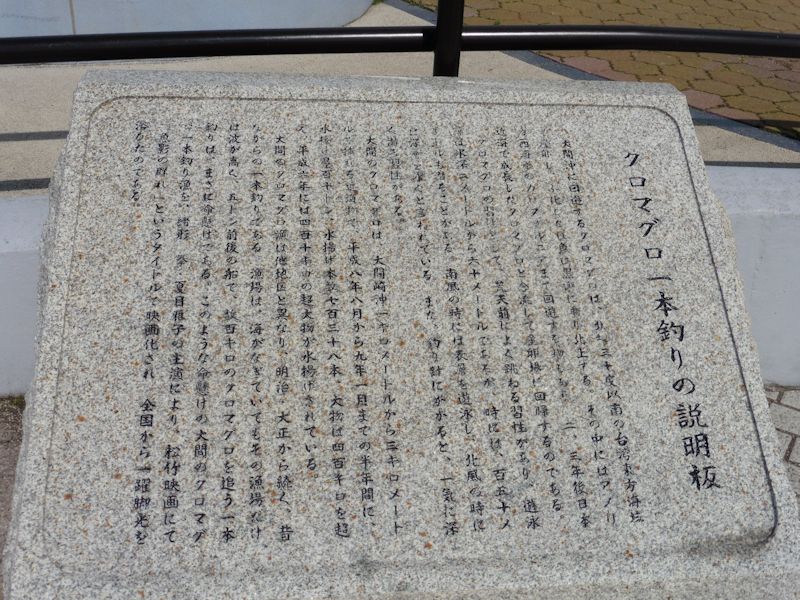 クロマグロ一本釣りの説明板
大間沖に回遊するクロマグロは、 三十度以南の台湾東方海域
北上する。その中にはアメリ
カ西海岸のカリフォルニアまで回遊する 二、三年後日本
近海で成長したクロマグロと合流して産卵場に回帰するのである
クロマグロの習性として、 よく跳ねる習性があり、遊泳
メートルから六十メートルであるが、時には、百五十メ
ることがある。南風の時には表層を遊泳し、北風の時に
は深 と言われている。また、釣り針にかかると、一気に深
く潜る習性がある。
大間のクロマグロは、大間崎沖一キロメートルから三キロメート
ル 平成八年八月から九年一月までの半年間に
水揚げ本数七百三十八本、大物は四百キロを超
え、平成六年には四百四十キロの超大物が水揚げされている。
大間のクロマグロ漁は他地区と異なり、明治、大正から続く、昔
ながらの一本釣りである。漁場は、海がなぎていてもその漁場だけ
は波が高く、五トン前後の船で、数百キロのクロマグロを追う一本
釣りは、まさに命懸けである。このような命懸けの大間のクロマグ
ロ一本釣り漁を、緒形 拳、夏目雅子の主演により、松竹映画にて
「魚影の群れ」というタイトルで映画化され、全国から一躍脚光を
浴びたのである。